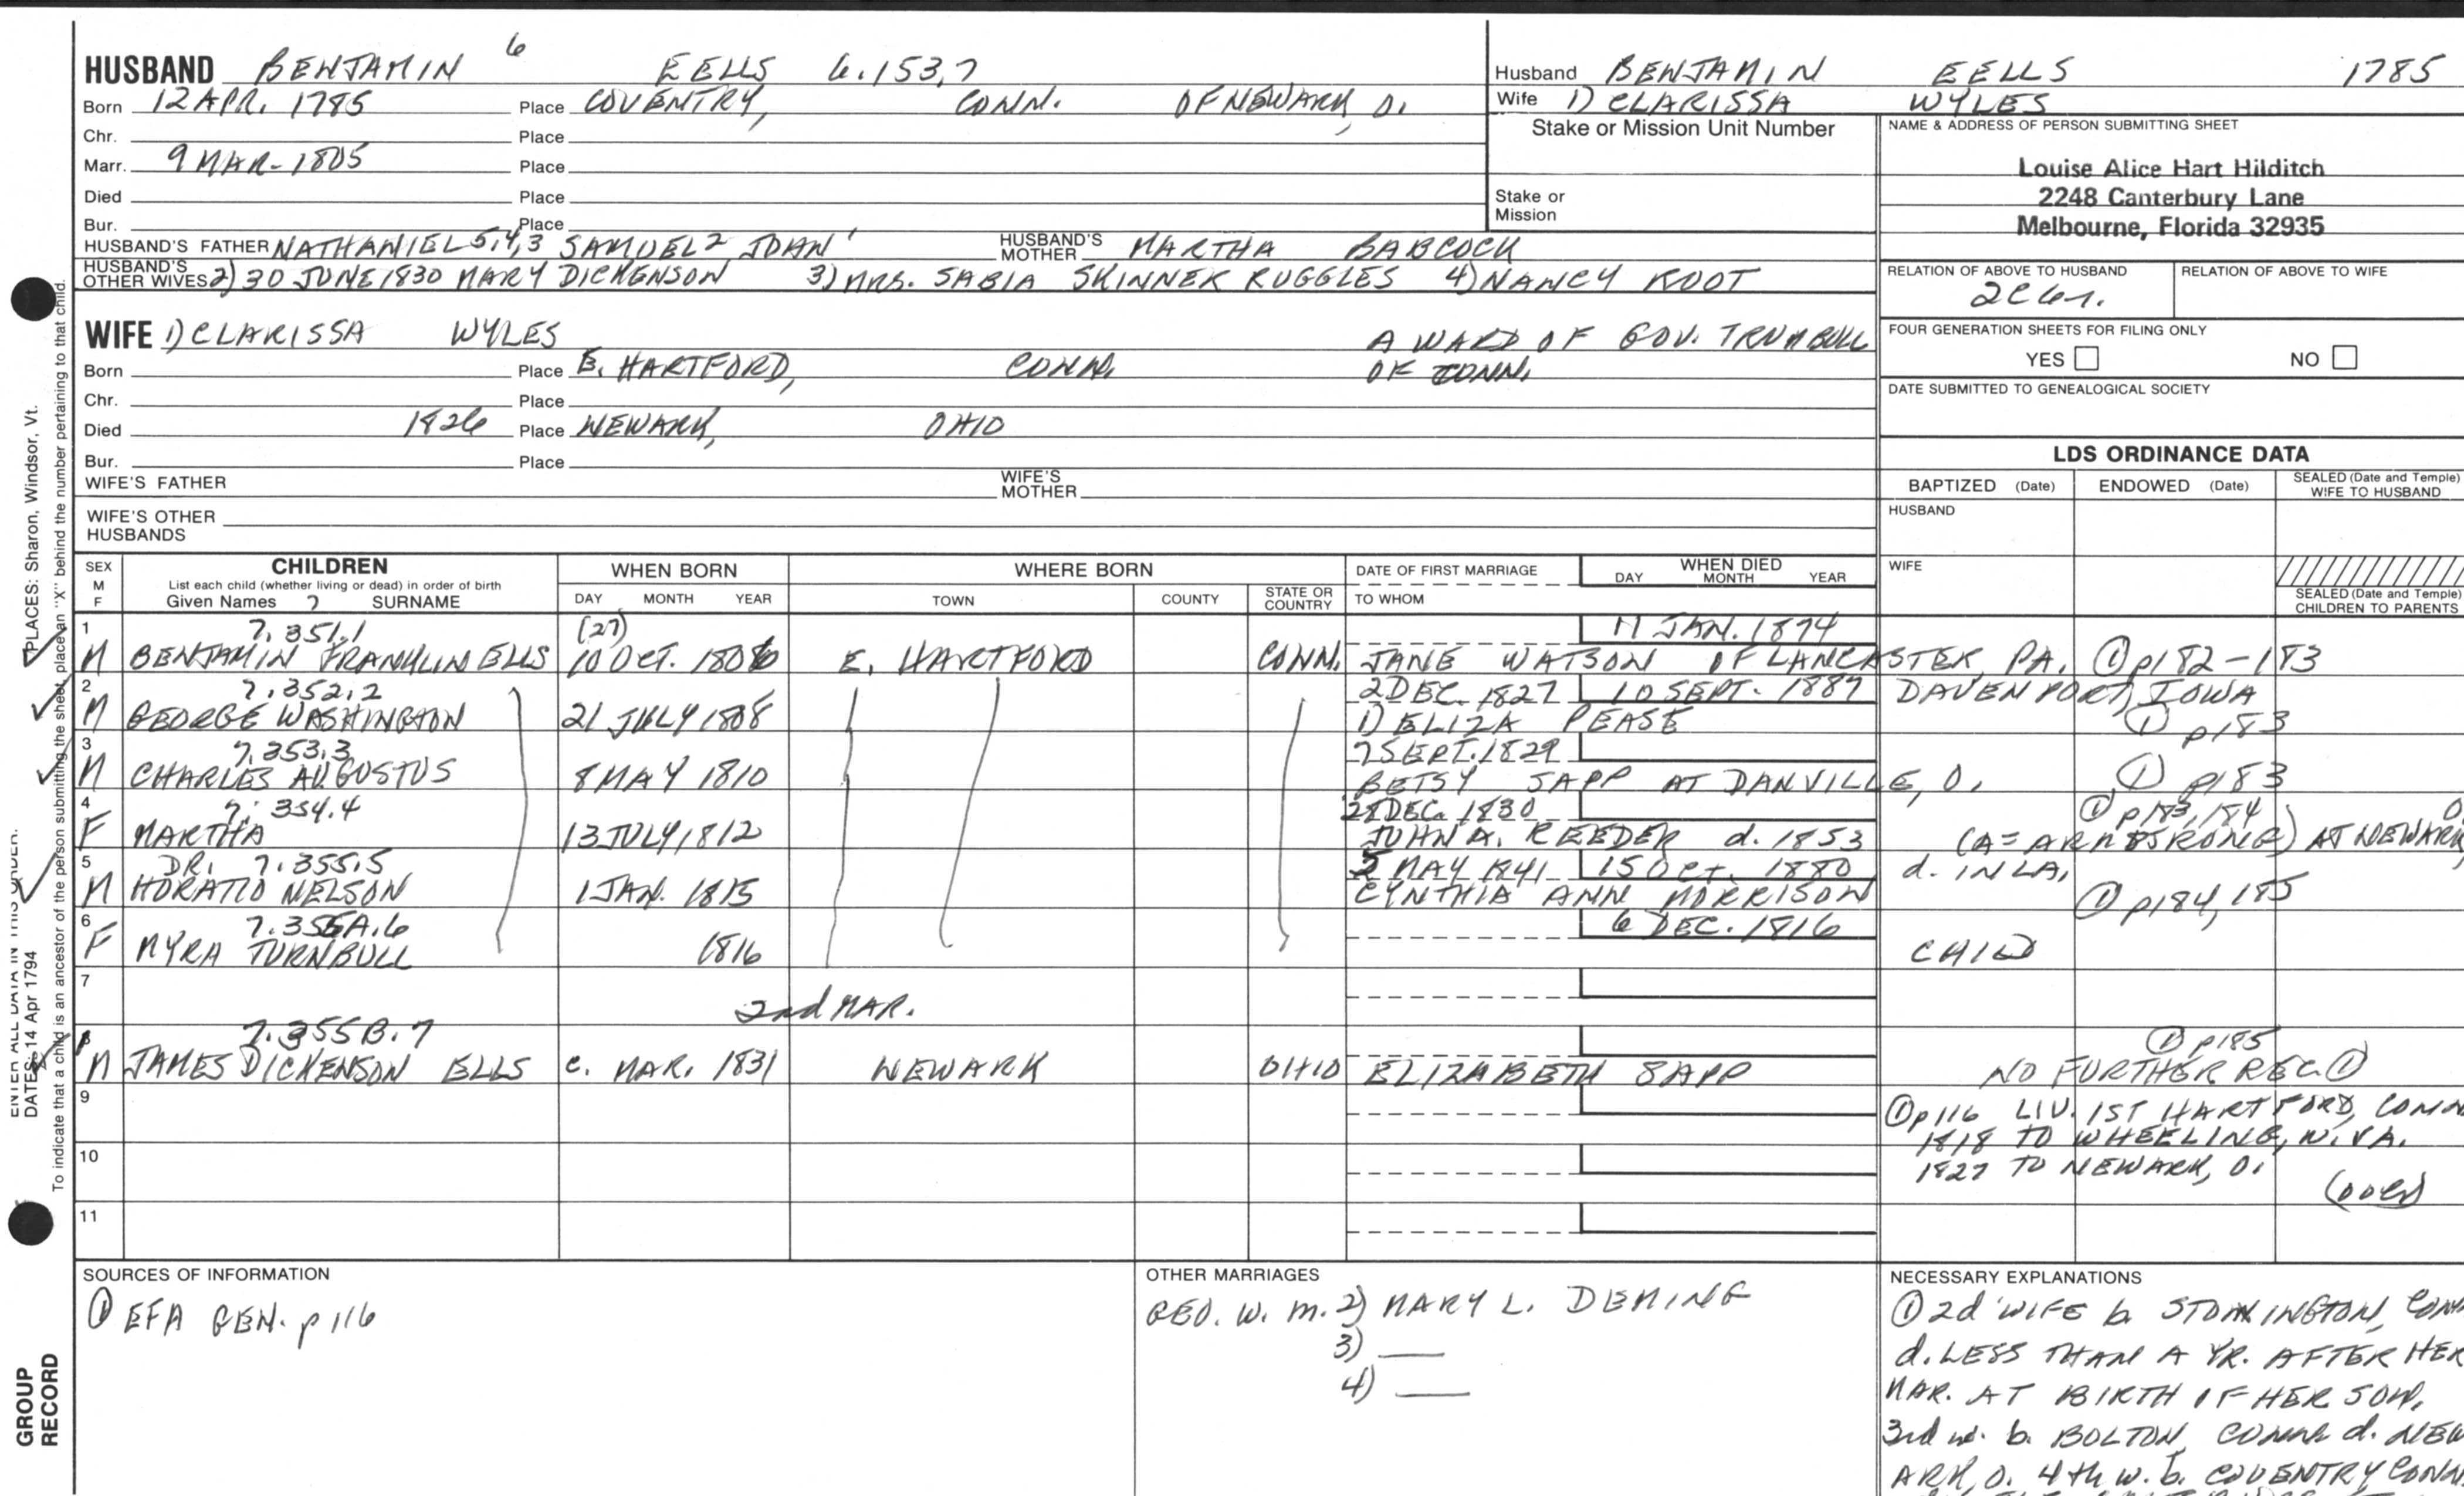 HUSBAND BENJAMIN 6 EELLS 6.153,7
Born 12 APR. 1785 Place COVENTRY, CONN. OF NEWARK, O.
Chr. Place
Marr. 9 MAR. 1805 Place
Died Place
Bur. Place
HUSBAND'S FATHER NATHANIEL 5,4,3 SAMUEL 2 JOHN 1 HUSBAND'S MOTHER MARTHA BABCOCK
HUSBAND'S OTHER WIVES 2) 30 JUNE 1830 MARY DICKENSON 3) MRS. SABIA SKINNER RUGGLES 4) NANCY ROOT
WIFE 1) CLARISSA WYLES A WARD OF GOV. TRUMBULL
Born Place E. HARTFORD, CONN. OF CONN.
Chr. Place
Died 1826 Place NEWARK, OHIO
Bur. Place
WIFE'S FATHER WIFE'S MOTHER
WIFE'S OTHER HUSBANDS
Husband BENJAMIN EELLS 1785
Wife 1) CLARISSA WYLES
Stake or Mission Unit Number
Stake or Mission
NAME & ADDRESS OF PERSON SUBMITTING SHEET
Louise Alice Hart Hilditch
2248 Canterbury Lane
Melbourne, Florida 32935
RELATION OF ABOVE TO HUSBAND RELATION OF ABOVE TO WIFE
2C6r.
FOUR GENERATION SHEETS FOR FILING ONLY
YES NO
DATE SUBMITTED TO GENEALOGICAL SOCIETY
LDS ORDINANCE DATA
BAPTIZED (Date) ENDOWED (Date) SEALED (Date and Temple) WIFE TO HUSBAND
HUSBAND
WIFE
SEALED (Date and Temple) CHILDREN TO PARENTS
SEX M F CHILDREN WHEN BORN WHERE BORN DATE OF FIRST MARRIAGE WHEN DIED
List each child (whether living or dead) in order of birth DAY MONTH YEAR
Given Names 7 SURNAME DAY MONTH YEAR TOWN COUNTY STATE OR COUNTRY TO WHOM
1 7.351.1 (27) 17 JAN. 1874
M BENJAMIN FRANKLIN ELLS 10 OCT. 1806 E. HARTFORD CONN. JANE WATSON OF LANCASTER, PA. ① p182-183
2 7.352.2 2 DEC. 1827 10 SEPT. 1887 DAVENPORT, IOWA
M GEORGE WASHINGTON 21 JULY 1808 1) ELIZA PEASE ① p183
3 7.353.3 7 SEPT. 1829
M CHARLES AUGUSTUS 8 MAY 1810 BETSY SAPP AT DANVILLE, O. ① p183
4 7.354.4 28 DEC. 1830 ① p183,184 O.
F MARTHA 13 JULY 1812 JOHN A. REEDER d. 1853 (A = ARMSTRONG) AT NEWARK
5 DR. 7.355.5 5 MAY 1841 15 Oct. 1880 d. IN LA.
M HORATIO NELSON 1 JAN. 1815 CYNTHIA ANN MORRISON ① p184,185
6 7.355A.6 6 DEC. 1816
F MYRA TURNBULL 1816 CHILD
7
2nd MAR.
8 7.355B.7 ① p185
M JAMES DICKENSON ELLS c. MAR. 1831 NEWARK OHIO ELIZABETH SAPP NO FURTHER REC. ①
9
① p116 LIV. 1ST HARTFORD, CONN
1818 TO WHEELING, W. VA.
10
1827 TO NEWARK, O.
(over)
11
SOURCES OF INFORMATION
① EFA GEN. p 116
OTHER MARRIAGES
GEO. W. m. 2) MARY L. DEMING
3)
4)
NECESSARY EXPLANATIONS
① 2d WIFE b. STONINGTON, CONN
d. LESS THAN A YR. AFTER HER
MAR. AT BIRTH OF HER SON.
3rd w. b. BOLTON, CONN d. NEW
ARK, O. 4th w. b. COVENTRY CONN.
PLACES: Sharon, Windsor, Vt.
To indicate that a child is an ancestor of the person submitting the sheet, place an "X" behind the number pertaining to that child.
ENTER ALL DATA IN THIS ORDER:
DATES: 14 Apr 1794
GROUP RECORD